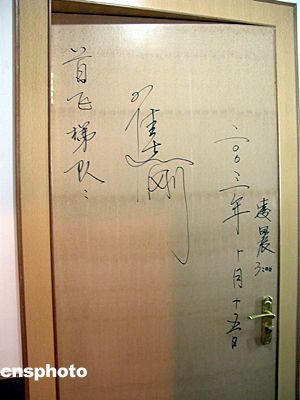 首飞梯队:
翟志刚
二00三年十月十五日
凌晨
3:00
cnsphoto